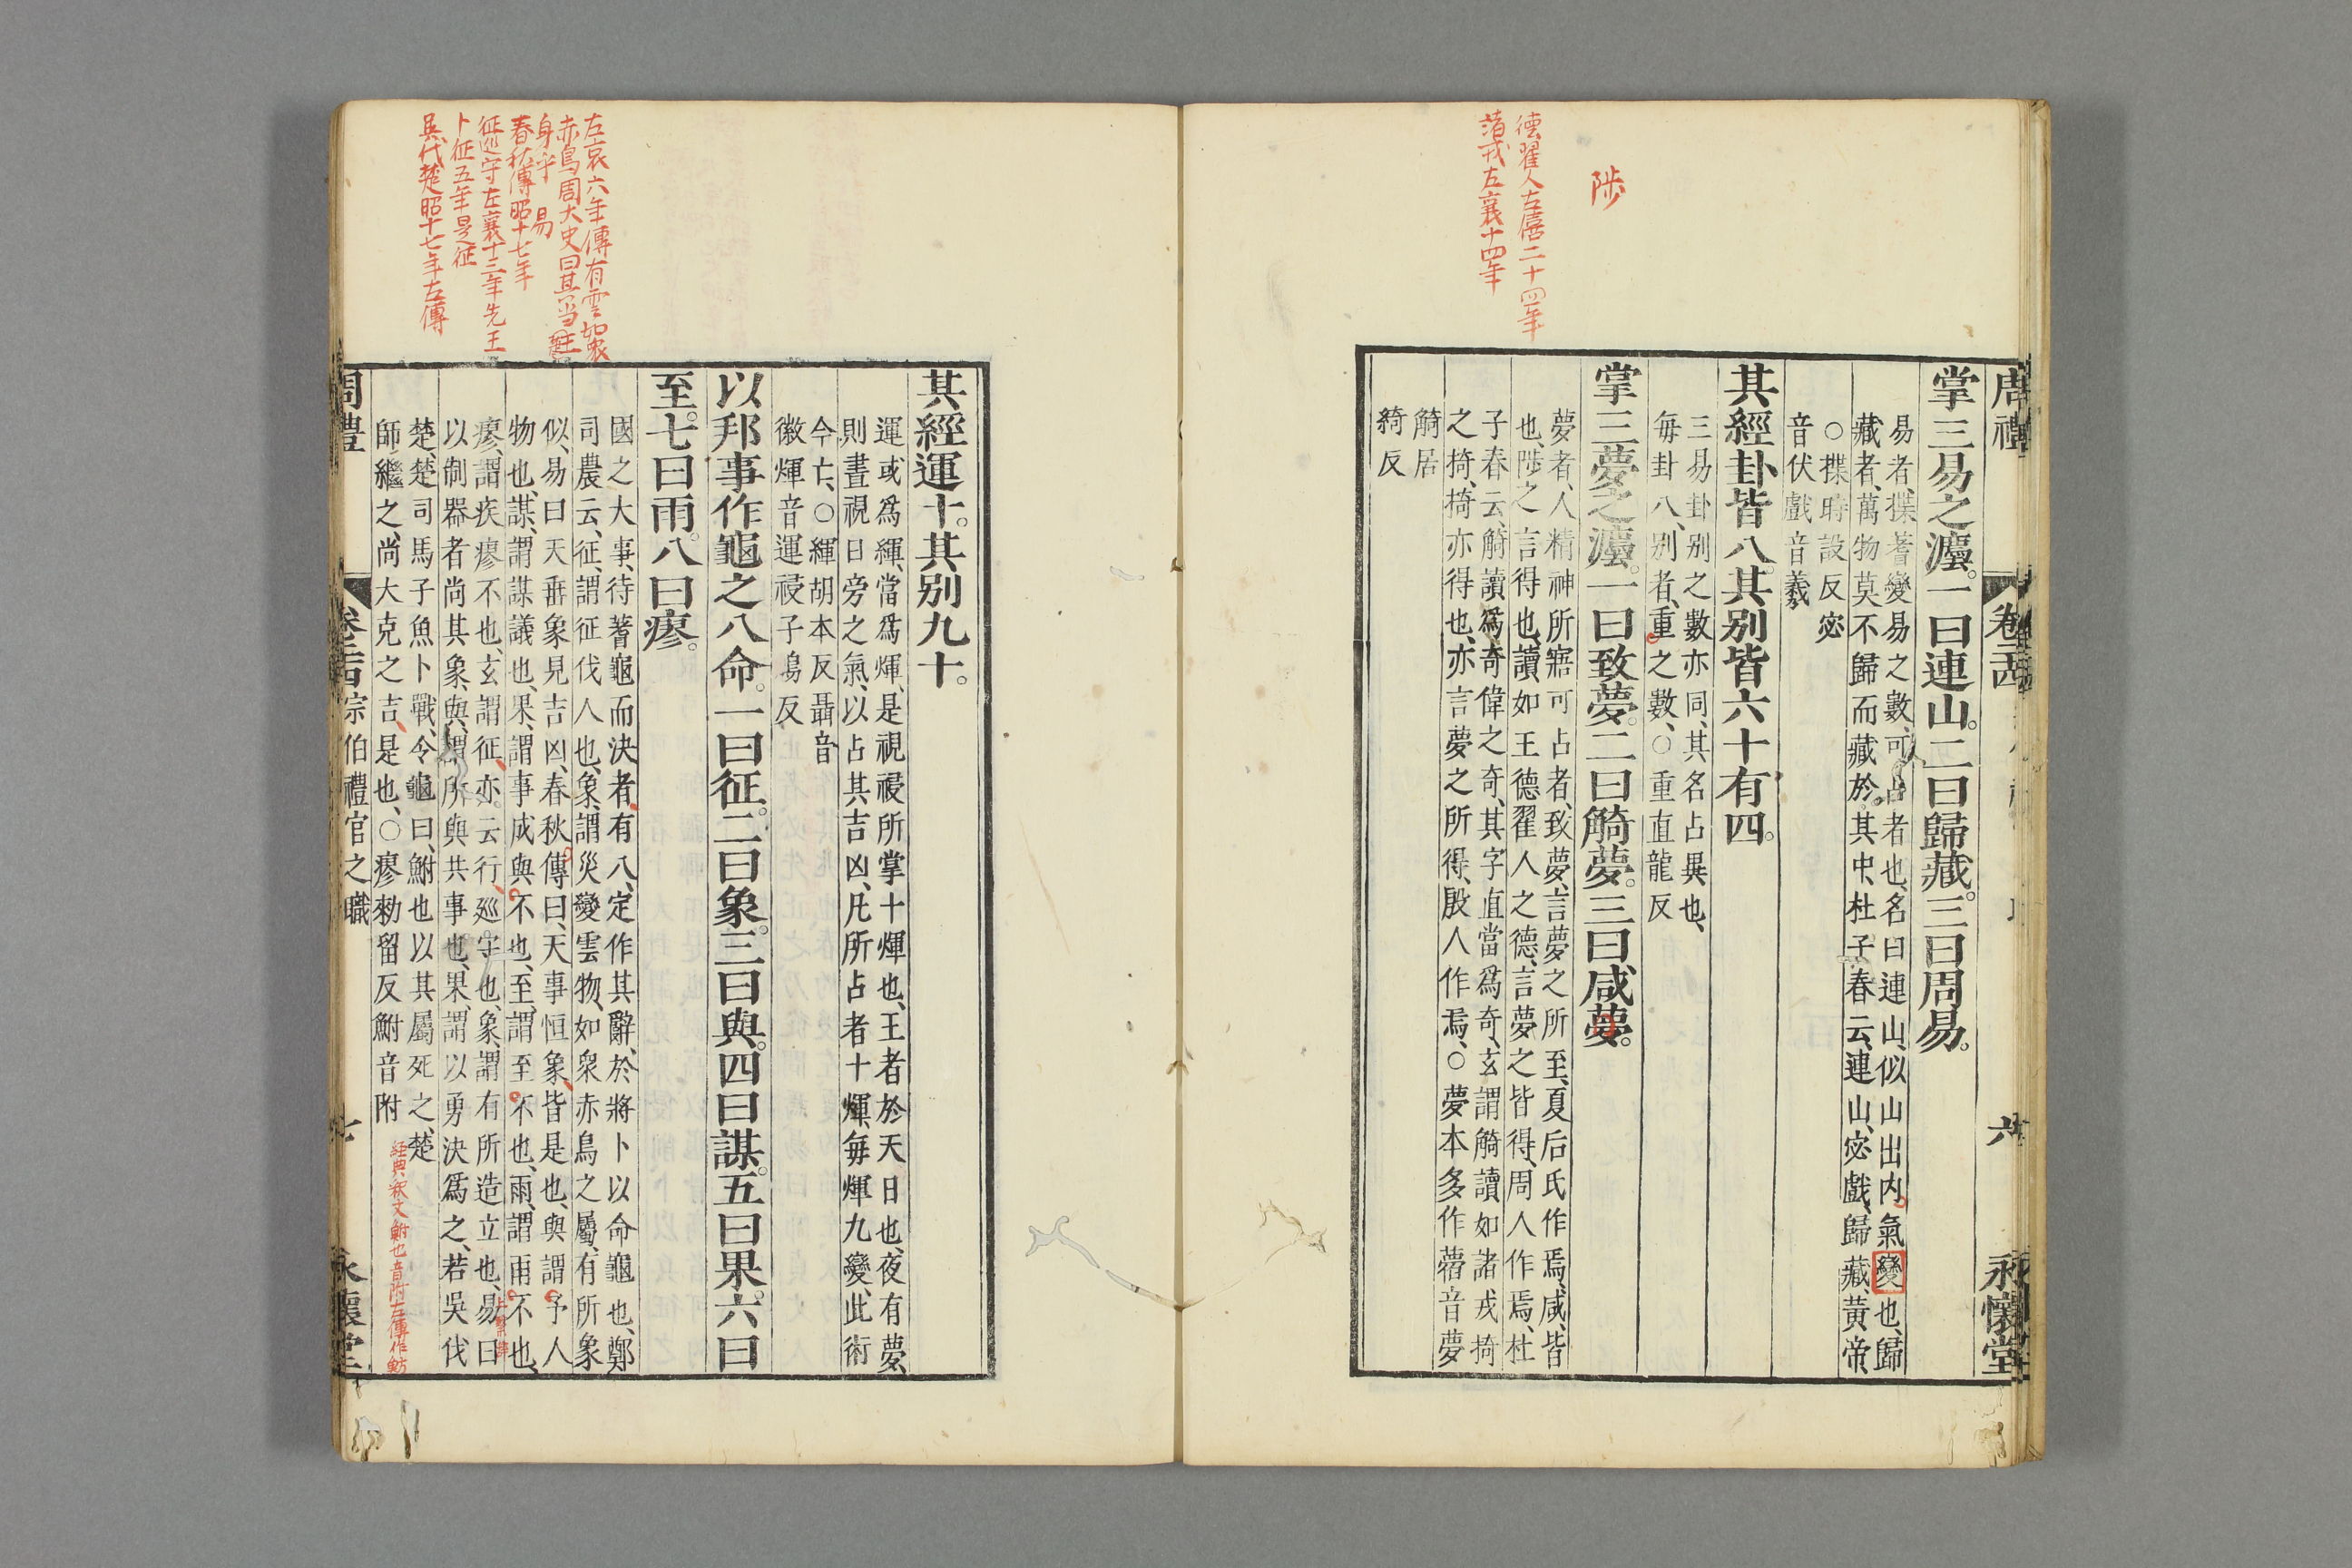 周禮
卷二十四
六
永懷堂
掌三易之灋。一曰連山。二曰歸藏。三曰周易。
易者、揲蓍變易之數、可占者也、名曰連山、似山出内氣變也、歸
藏者、萬物莫不歸而藏於其中、杜子春云、連山、宓戲、歸藏、黃帝、
○揲時設反宓
音伏戲音羲
其經卦皆八。其别皆六十有四。
三易卦别之數亦同、其名占異也、
每卦八、别者、重之數、○重直龍反
掌三夢之灋。一曰致夢。二曰觭夢。三曰咸夢。
夢者、人精神所寤可占者、致夢、言夢之所至、夏后氏作焉、咸、皆
也、陟之言得也、讀如王德翟人之德、言夢之皆得、周人作焉、杜
子春云、觭讀爲奇偉之奇、其字直當爲奇、玄謂觭讀如諸戎掎
之掎、掎亦得也、亦言夢之所得、殷人作焉、○夢本多作㝱音夢
觭居
綺反
陟
德翟人左僖二十四年
諸戎左襄十四年
其經運十。其别九十。
運或爲緷、當爲煇、是視祲所掌十煇也、王者於天日也、夜有夢、
則晝視日旁之氣、以占其吉凶、凡所占者十煇、每煇九變、此術
今亡、○緷胡本反聶音
徽煇音運祲子鴆反
以邦事作龜之八命。一曰征。二曰象。三曰與。四曰謀。五曰果。六曰
至。七曰雨。八曰瘳。
國之大事、待蓍龜而決者有八、定作其辭、於將卜以命龜也、鄭
司農云、征、謂征伐人也、象、謂災變雲物、如衆赤鳥之屬、有所象
似、易曰天垂象見吉凶、春秋傳曰、天事恒象、皆是也、與謂予人
物也、謀、謂謀議也、果、謂事成與不也、至、謂至不也、雨、謂雨不也、
瘳、謂疾瘳不也、玄謂征、亦云行、巡守也、象、謂有所造立也、易曰
以制器者尚其象、與、謂所與共事也、果、謂以勇決爲之、若吳伐
楚、楚司馬子魚卜戰、令龜曰、鮒也以其屬死之、楚
師繼之、尚大克之吉、是也、○瘳勑留反鮒音附
経典釈文鮒也音附左傳作魴
上繫辞
左哀六年傳有雲如衆
赤鳥周大史曰其当王
身乎 易
春秋傳昭十七年
征巡守左襄十三年先王
卜征五年是征
吳伐楚昭十七年左傳
周禮
卷二十四 宗伯禮官之職
七
永懷堂